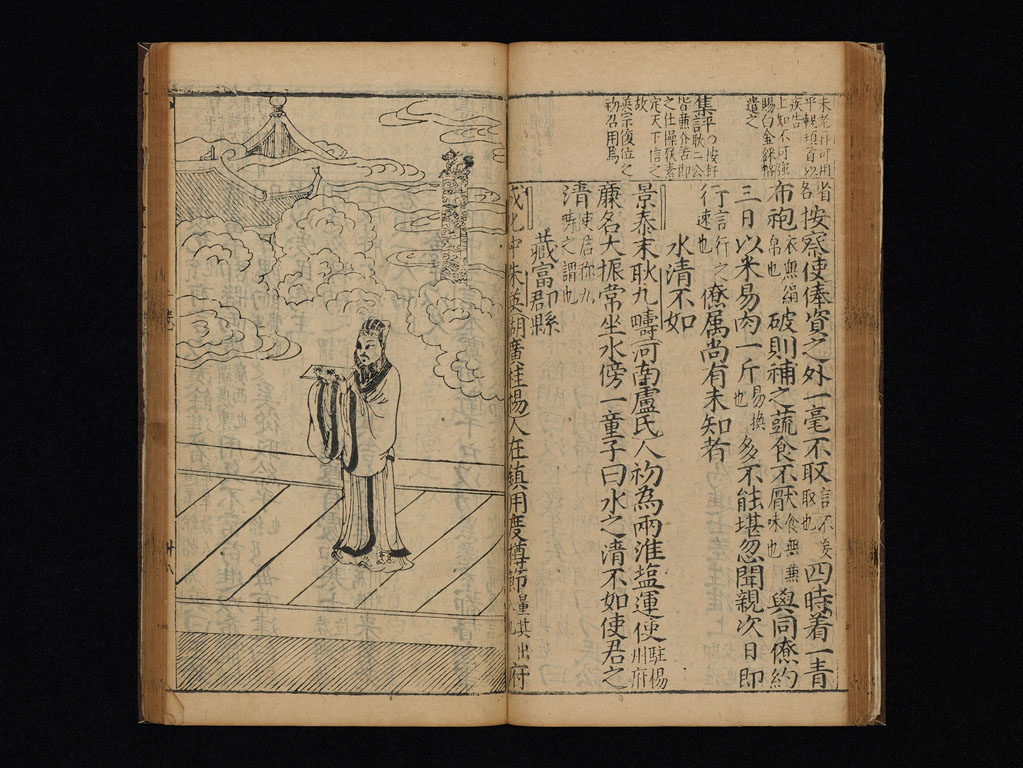 未老
可用
平輒頓首以
疾告
上知不可強
賜白金綵幣
遣之
集評○按軒
耿二公
定天下信之
故
英宗復位之
初召用焉
按察使俸資之外一毫不取言不妄取也四時着一青
布袍衣無絹帛也破則補之蔬食不厭食無兼味也與同僚約
三日以米易肉一斤易換也多不能堪忽聞親次日即
行言行之速也僚属尚有未知者
水清不如
景泰末耿九疇河南盧氏人初為兩淮塩運使駐楊州府
廉名大振常坐水傍一童子曰水之清不如使君之
清使君称九疇之謂也
藏富郡縣
成化中朱英湖廣桂楊人在鎮用度撙節量其出府